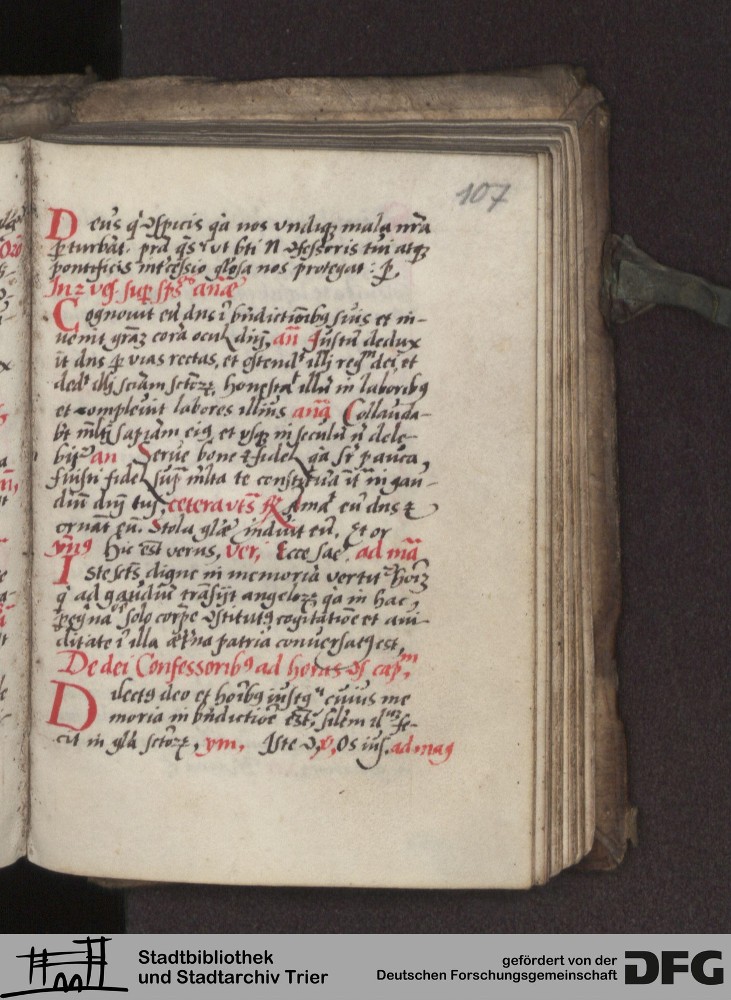 107
Deus q̄ ɔspicis q̄a nos vndiqȝ mala nr̄a
ꝑturbāt. p̄ra q̄s vt bt̄i N ɔfessoris tui atqȝ
pontificis int̄cessio gl̄osa nos protegat: ꝑ
In 2 vesp̄ sup̄ ps̄os anāe
Cognouit eū dns ī bn̄dictiōibꝰ suis et in-
uenit grāȝ corā ocul dn̄j, an̄ Justū dedux
it dns ꝑ vias rectas, et ostendᵗ illj regᵐ dei, et
dedᵗ illj sciam sctōꝝ, honestaᵗ illū in laboribꝰ
et compleuit labores illius anā Collauda-
bt̄ ml̄tj sapiam eiꝰ, et vsqȝ in seculū n̄ dele-
bitᷣ an Serue bone ⁊ fidel q̄a sr̄ pauca
fuisti fidel sup̄ ml̄ta te constituā īt in gau-
diū dn̄j tuj, cetera vts ꝶ Amaᵗ eū dns ⁊
ornāt eū. Stola glāe induit eū. Et or
ymꝰ Hic est verus, ver, Ecce sac. ad mā
Iste scts digne in memoriā vertitᷣ hoīȝ
q̄ ad gaudiū trāsijt angeloꝝ q̄a in hac
pegnā solo corpe ɔstitutꝰ cogitatiōe et aui-
ditate ī illa aet̄na patria conuersatꝰ est,
De dei Confessoribꝰ ad horas ɔf capᵐ,
Dilectꝰ deo et hoībꝰ iustꝰ cuius me
moria in bn̄dictiōe est, silem illᵘᵐ fe-
cit in glā sctōꝝ, ym, Iste ɔ, v, Os ius, ad mag
Stadtbibliothek
und Stadtarchiv Trier
gefördert von der
Deutschen Forschungsgemeinschaft
DFG